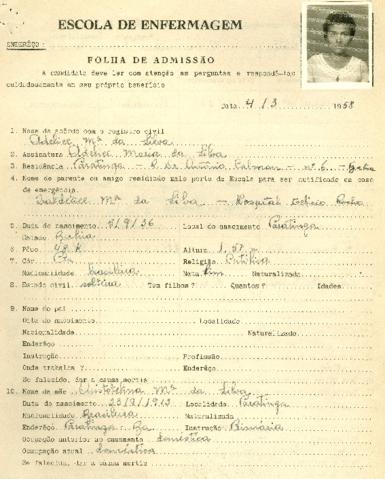 ESCOLA DE ENFERMAGEM
ENDERÊÇO:
FOLHA DE ADMISSÃO
A candidata deve ler com atenção as perguntas e respondê-las
cuidadosamente em seu próprio benefício
Data 4/3 1958
1. Nome de acôrdo com o registro civil
Mª da Silva
2. Assinatura Maria da Silva
3. Residência Paratinga - nº 6 - Bahia
4. Nome de parente ou amigo residindo mais perto da Escola para ser notificado em caso
de emergência.
Mª da Silva - Hospital
5. Data do nascimento 5/9/36 Local do nascimento Paratinga
Estado Bahia
6. Pêso Altura 1,57 m
7. Côr Religião Católica
Nacionalidade brasileira Nata sim Naturalizada
8. Estado civil solteira Tem filhos? Quantos? Idades
9. Nome do pai
Data do nascimento Localidade
Nacionalidade Naturalizado
Enderêço
Instrução Profissão
Onde trabalha?
Se falecido, dar a causa mortis
10. Nome da mãe Mª da Silva
Data do nascimento 23/9/1913 Localidade Paratinga
Nacionalidade Brasileira Naturalizada
Enderêço Paratinga Ba Instrução Primária
Ocupação anterior ao casamento doméstica
Ocupação atual doméstica
Se falecida, dar a causa mortis